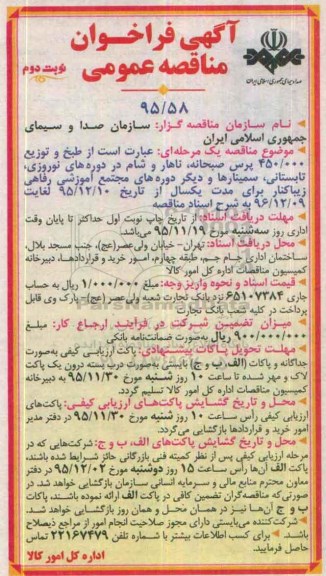 آگهی فراخوان
مناقصه عمومی
نوبت دوم
صدا و سیمای جمهوری اسلامی ایران
۹۵/۵۸
نام سازمان مناقصه گزار: سازمان صدا و سیمای
جمهوری اسلامی ایران
موضوع مناقصه یک مرحله‌ای: عبارت است از طبخ و توزیع
۴۵۰/۰۰۰ پرس صبحانه، ناهار و شام در دوره‌های نوروزی،
تابستانی، سمینارها و دیگر دوره‌های مجتمع آموزشی رفاهی
زیباکنار برای مدت یکسال از تاریخ ۹۵/۱۲/۱۰ لغایت
۹۶/۱۲/۰۹ به شرح اسناد مناقصه
مهلت دریافت اسناد: از تاریخ چاپ نوبت اول حداکثر تا پایان وقت
اداری روز سه‌شنبه مورخ ۹۵/۱۱/۱۹ می‌باشد.
محل دریافت اسناد: تهران - خیابان ولی‌عصر(عج)، جنب مسجد بلال،
ساختمان اداری جام جم، طبقه چهارم، امور خرید و قراردادها، دبیرخانه
کمیسیون مناقصات اداره کل امور کالا
قیمت اسناد و نحوه واریز وجه: مبلغ ۱/۰۰۰/۰۰۰ ریال به حساب
جاری ۶۵۱۰۷۳۸۴ نزد بانک تجارت شعبه ولی‌عصر (عج)- پارک وی قابل
پرداخت در کلیه شعب بانک تجارت
میزان تضمین شرکت در فرآیند ارجاع کار: مبلغ
۹۰۰/۰۰۰/۰۰۰ ریال به‌صورت ضمانت‌نامه بانکی
مهلت تحویل پاکات پیشنهادی: پاکت ارزیابی کیفی به‌صورت
جداگانه و پاکات (الف، ب و ج) بایستی به‌صورت درب بسته درون یک پاکت
لاک و مهر شده تا ساعت ۱۰ روز شنبه مورخ ۹۵/۱۱/۳۰ به دبیرخانه
کمیسیون مناقصات اداره کل امور کالا تسلیم گردد.
محل و تاریخ گشایش پاکت‌های ارزیابی کیفی: پاکت‌های
ارزیابی کیفی رأس ساعت ۱۰ روز شنبه مورخ ۹۵/۱۱/۳۰ در دفتر مدیر
امور خرید و قراردادها بازگشایی می‌گردد.
محل و تاریخ گشایش پاکت‌های الف، ب و ج: شرکت‌هایی که در
مرحله ارزیابی کیفی پس از نظر کمیته فنی بازرگانی حائز شرایط شده باشند،
پاکت الف آن‌ها رأس ساعت ۱۵ روز دوشنبه مورخ ۹۵/۱۲/۰۲ در دفتر
معاون محترم منابع مالی و سرمایه انسانی سازمان بازگشایی خواهد شد. در
صورتی که مناقصه‌گران تضمین کافی در پاکت الف ارائه نموده باشند، پاکات
ب و ج آن‌ها نیز در همان محل و همان روز بازگشایی خواهد شد.
شرکت‌کننده می‌بایستی دارای مجوز صلاحیت انجام امور از مراجع ذیصلاح
باشند. برای کسب اطلاعات بیشتر با شماره تلفن ۲۲۱۶۷۴۷۹ تماس
حاصل فرمایید.
اداره کل امور کالا